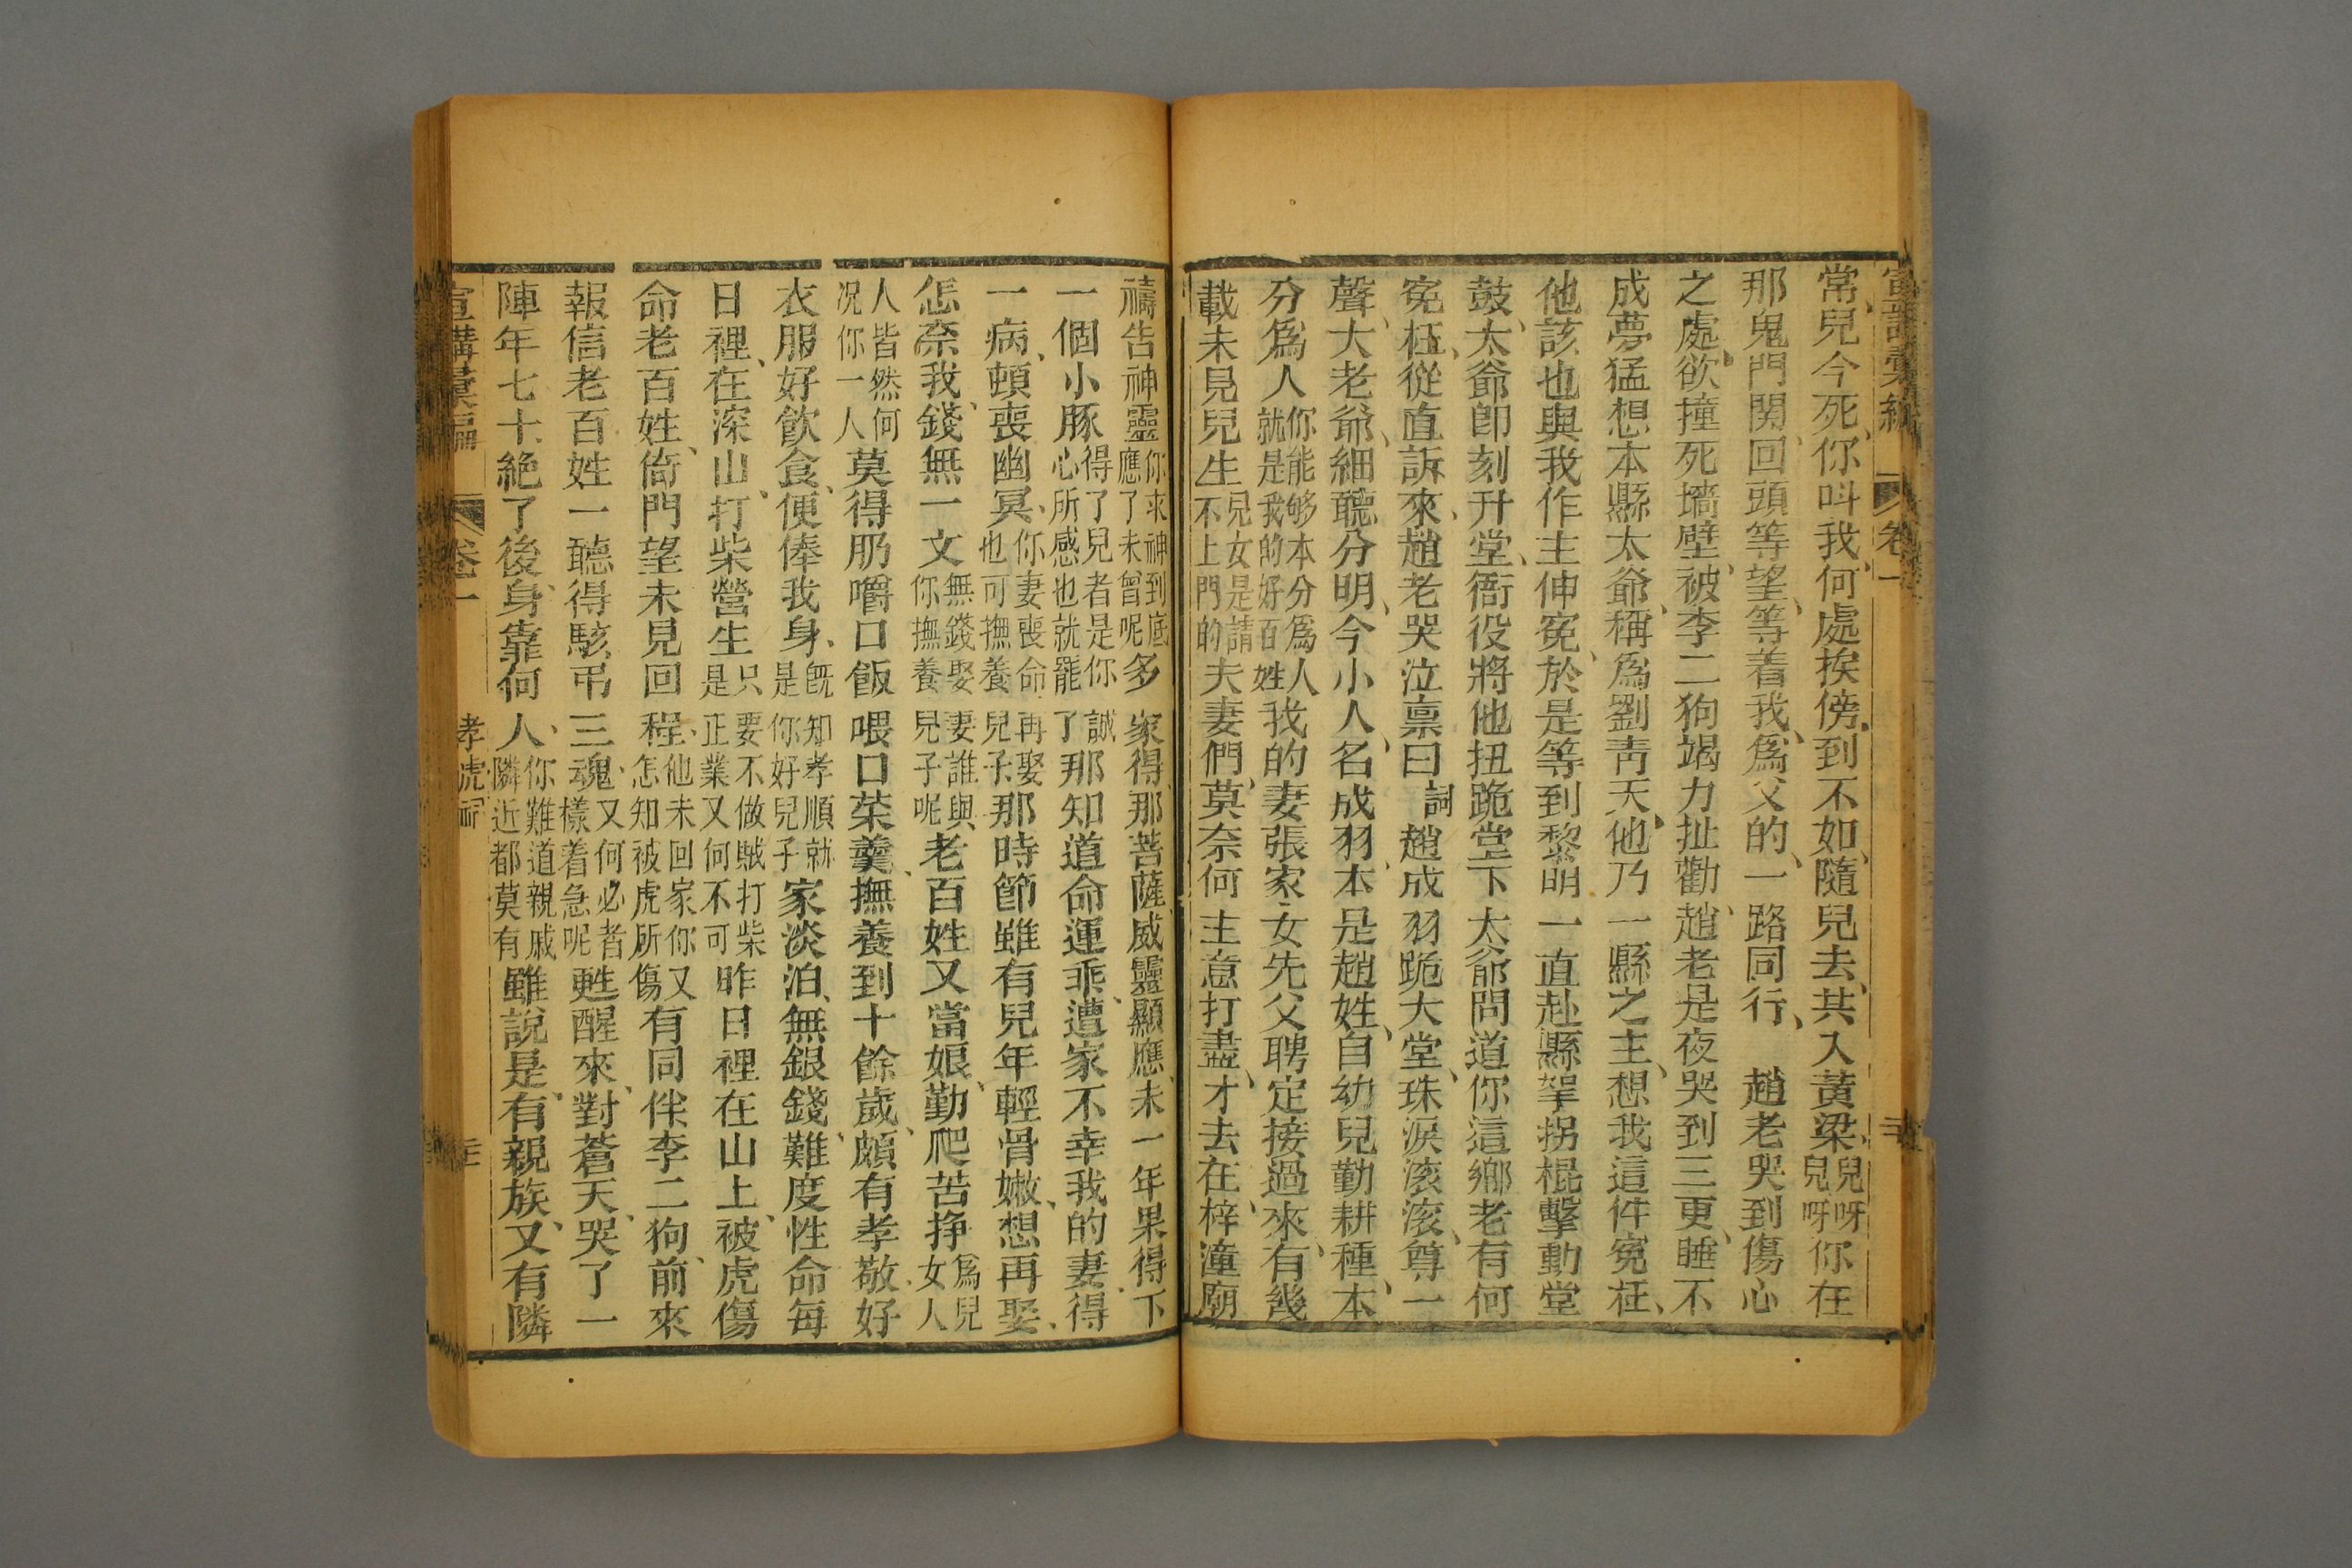 宣講彙編 卷一
常、兒今死、你呌我、何處挨傍、到不如、隨兒去、共入黃梁、兒呀兒呀你在
那鬼門関、回頭等望、等着我、爲父的、一路同行、 趙老哭到傷心
之處、欲撞死墻壁、被李二狗竭力扯勸、趙老是夜哭到三更、睡不
成夢猛想本縣太爺、稱爲劉靑天、他乃一縣之主、想我這件寃枉、
他該也與我作主伸寃、於是等到黎明一直赴縣挐拐棍擊動堂
鼓、太爺卽刻升堂、衙役將他扭跪堂下太爺問道你這鄉老有何
寃枉、從直訴來、趙老哭泣禀曰 詞 趙成羽跪大堂、珠淚滚滚、尊一
聲、大老爺、細聽分明、今小人、名成羽、本是趙姓、自幼兒勤耕種、本
分爲人你能够本分爲人就是我的好百姓我的妻張家女先父聘定接過來、有幾
載未見兒生兒女是請不上門的夫妻們、莫奈何主意打盡、才去在梓潼廟
禱告神靈你求神到底應了未曾呢多家得、那菩薩、威靈顯應、未一年果得下
一個小豚得了兒者是你誠心所感也就罷了那知道命運乖、遭家不幸我的妻、得
一病、頓喪幽冥、你妻喪命再娶也可撫養兒子那時節雖有兒年輕骨嫩、想再娶、
怎奈我、錢無一文無錢娶妻誰與你撫養兒子呢老百姓又當娘、勤爬苦挣爲兒女人
人皆然何况你一人莫得肭嚼口飯喂口菜羹、撫養到十餘歲、頗有孝敬好
衣服好飲食、便俸我身、旣知孝順就是你好兒子家淡泊、無銀錢、難度性命每
日裡、在深山、打柴營生只要不做賊打柴是正業又何不可昨日裡在山上、被虎傷
命老百姓、倚門望未見回程、他未回家你又怎知被虎所傷有同伴李二狗、前來
報信老百姓一聽得駭吊三魂、又何必者樣着急呢甦醒來、對蒼天、哭了一
陣年七十絕了後、身靠何人、你難道親戚隣近都莫有雖說是、有親族、又有隣
宣講彙編 卷一 孝虎祠